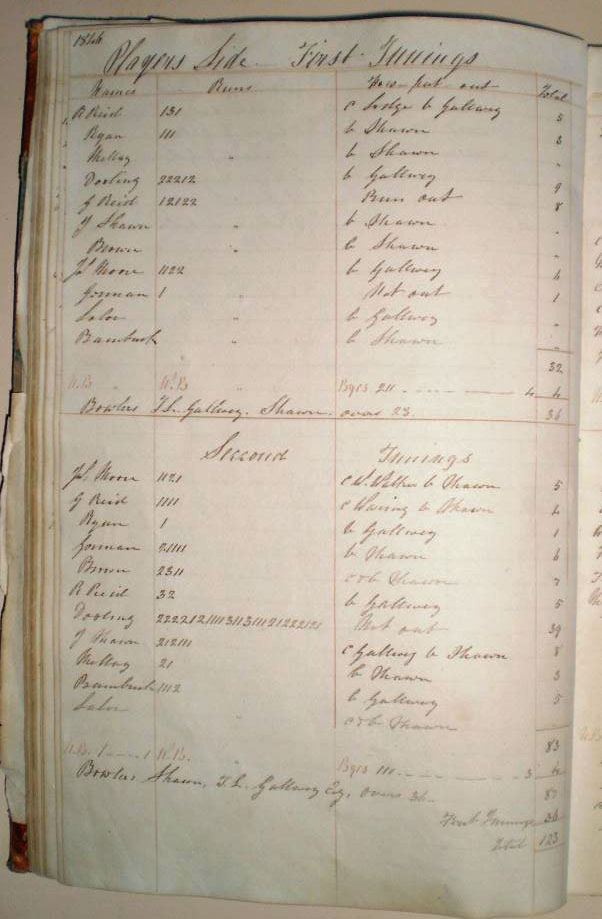 1846
Players Side First Innings
Names Runs How put out Total
R Reid 131 c Lodge b Gallwey 5
Ryan 111 b Shawn 3
Mellog " b Shawn "
Dooling 22212 b Gallwey 9
G Reid 12122 Run out 8
J Shawn " b Shawn "
Brown " b Shawn "
Js Moore 1122 b Gallwey 6
Gorman 1 " Not out 1
Lalor " b Gallwey "
Bambrick " b Shawn "
32
N.B " W.B " Byes 211 4 4
Bowlers T.L. Gallwey. Shawn. overs 23. 36
Second Innings
Js Moore 1121 c W. b Shawn 5
G Reid 1111 c Waring b Shawn 4
Ryan 1 b Gallwey 1
Gorman 21111 b Shawn 6
Brown 2311 c & b Shawn 7
R Reid 32 b Gallwey 5
Dooling Not out 39
J Shawn 212111 c Gallwey b Shawn 8
Mellog 21 b Shawn 3
Bambrick 1112 b Gallwey 5
Lalor " c & b Shawn
83
N.B. 1 1 W.B. Byes 111 3 4
Bowlers Shawn, T.L. Gallwey Esq, overs 36 87
First Innings 36
Total 123